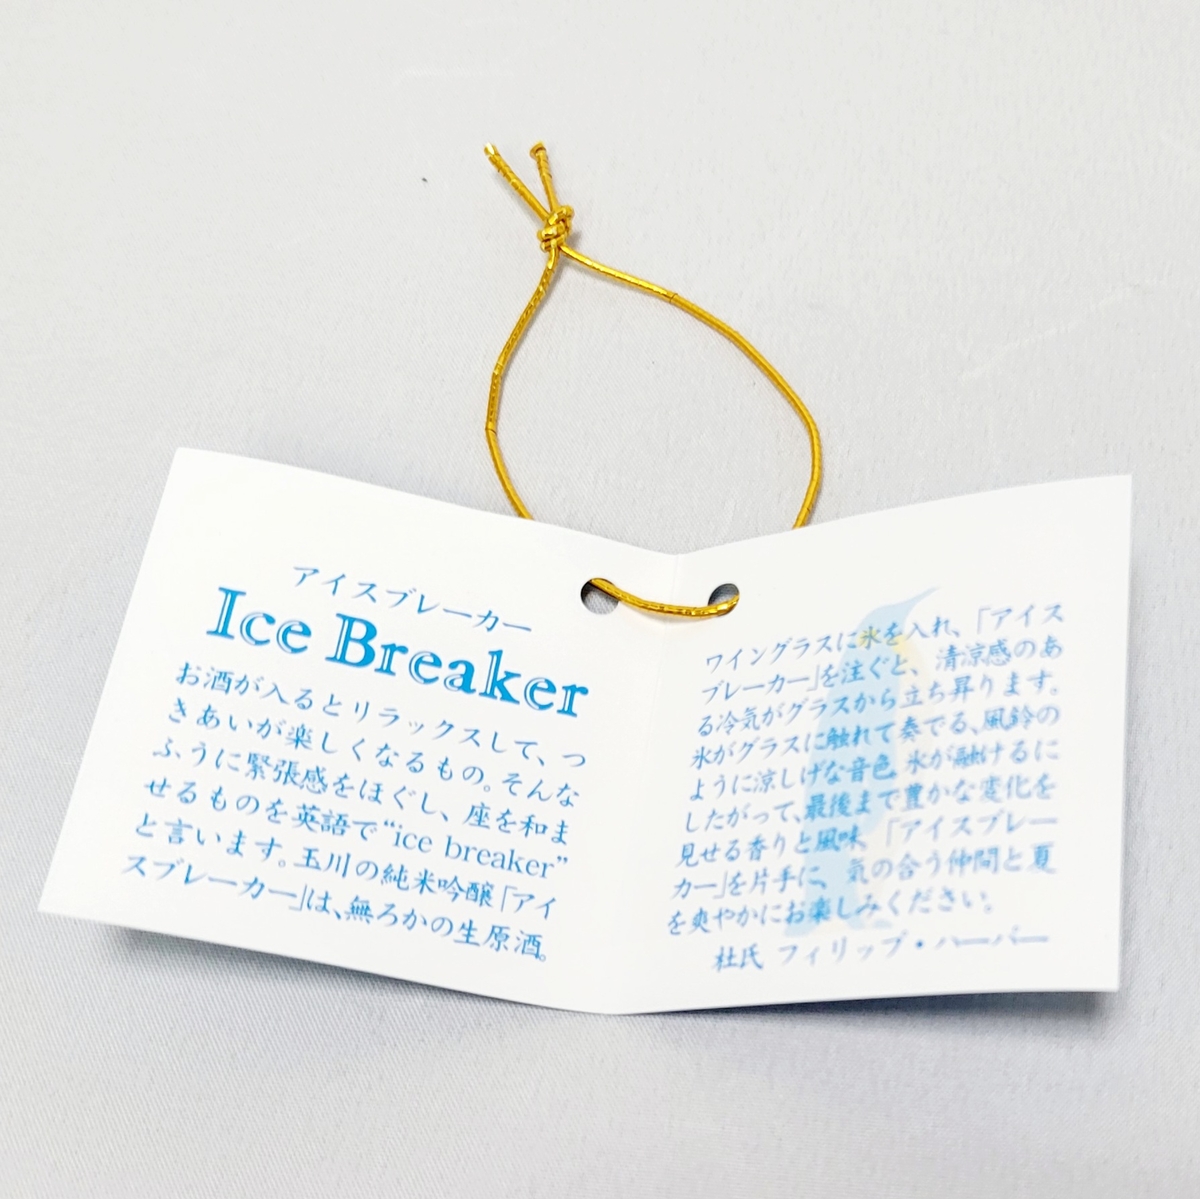 アイスブレーカー
Ice Breaker
お酒が入るとリラックスして、つ
きあいが楽しくなるもの。そんな
ふうに緊張感をほぐし、座を和ま
せるものを英語で“ice breaker”
と言います。玉川の純米吟醸「アイ
スブレーカー」は、無ろかの生原酒。
ワイングラスに氷を入れ、「アイス
ブレーカー」を注ぐと、清涼感のあ
る冷気がグラスから立ち昇ります。
氷がグラスに触れて奏でる、風鈴の
ように涼しげな音色。氷が融けるに
したがって、最後まで豊かな変化を
見せる香りと風味。「アイスブレー
カー」を片手に、気の合う仲間と夏
を爽やかにお楽しみください。
杜氏 フィリップ・ハーパー